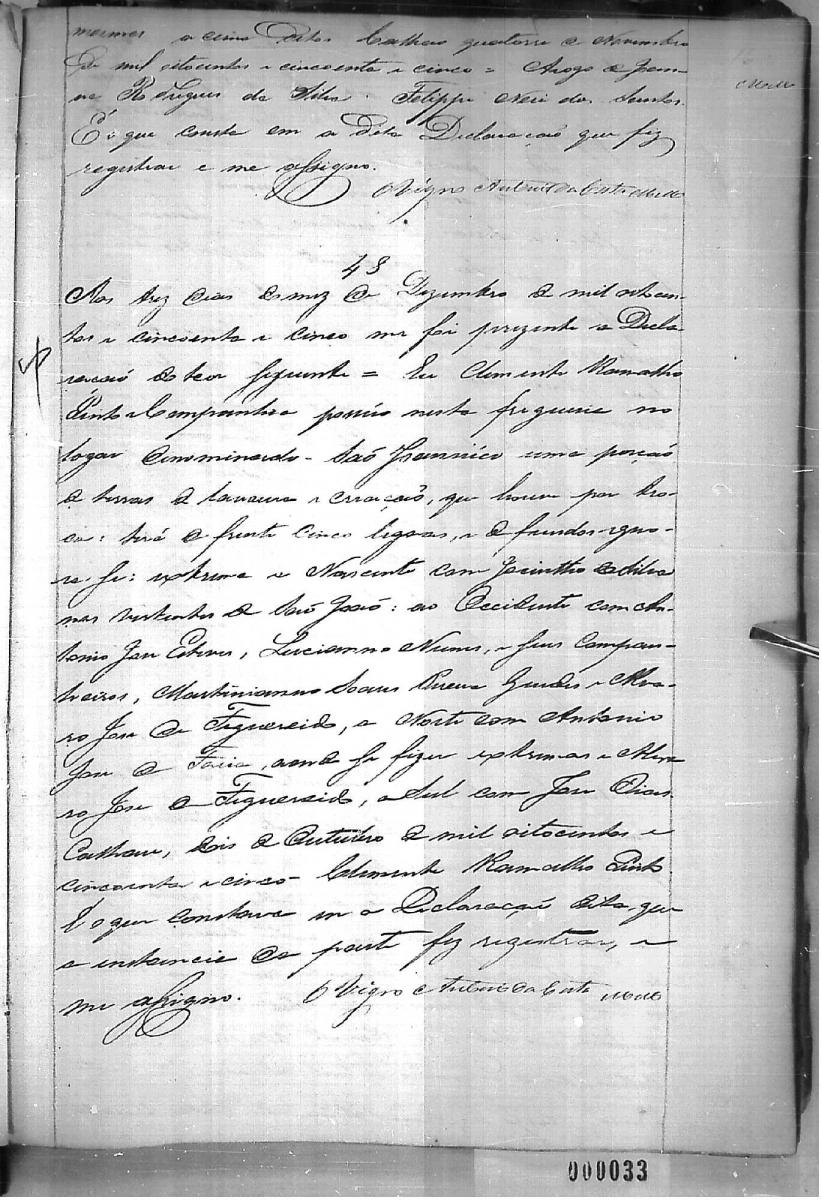 mesmas acima ditas Calháo quatorze de Novembro
de mil oitocentos e cincoenta e cinco = Arogo de Joan-
na Rodrigues da Silva. Felippe Neri dos Santos.
É o que consta em a dita Declaração que fiz
registrar e me assigno.
O Vigro Antonio da Costa Mello
Mello
48
Aos trez dias do mez de Dezembro de mil oitocen-
tos e cincoenta e cinco me foi prezente a Decla-
ração do teor seguinte = Eu Clemente Ramalho
Pinto e Companhia possúo nesta freguezia no
logar denominado - São Joannico uma porção
de terras de lavoura e criação, que houve por tro-
ca: terá de frente cinco legoas, e de fundos
se: extrema a Nascente com Jacintho da Silva
nas vertentes de São João: ao Occidente com An-
tonio Jose Esteves, Lucianno Nunes, e seus Compan-
heiros, Martinianno Soares Guedes e Alva-
ro Jose de Figueredo, a Norte com Antonio
Jose de Faria, aonde se fizer extremas e Alva
ro Jose de Figueredo, a Sul com Jose Dias
Calháo, dois de Outubro de mil oitocentos e
cincoenta e cinco - Clemente Ramalho Pinto
É o que constava em a Declaração dita, que
a instancia da parte fiz registrar, e
me assigno. O Vigro Antonio da Costa Mello
000033